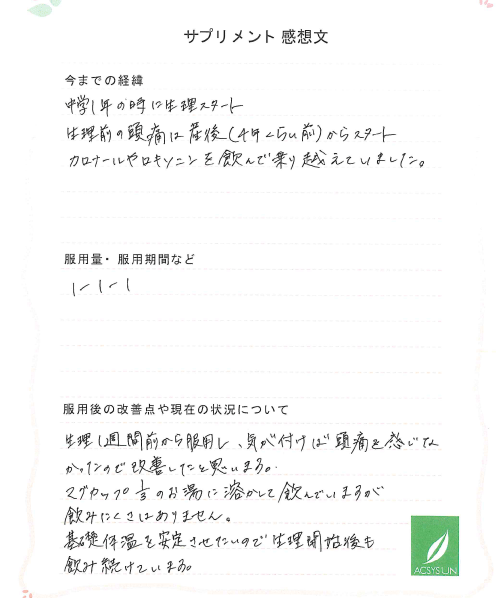 サプリメント 感想文
今までの経緯
中学1年の時に生理スタート
生理前の頭痛は産後(4年くらい前)からスタート
カロナールやロキソニンを飲んで乗り越えていました。
服用量・服用期間など
1-1-1
服用後の改善点や現在の状況について
生理1週間前から服用し、気が付けば頭痛を感じな
かったので改善したと思います。
マグカップ1/3のお湯に溶かして飲んでいますが
飲みにくさはありません。
基礎体温を安定させたいので生理開始後も
飲み続けています。
ACSYSLIN